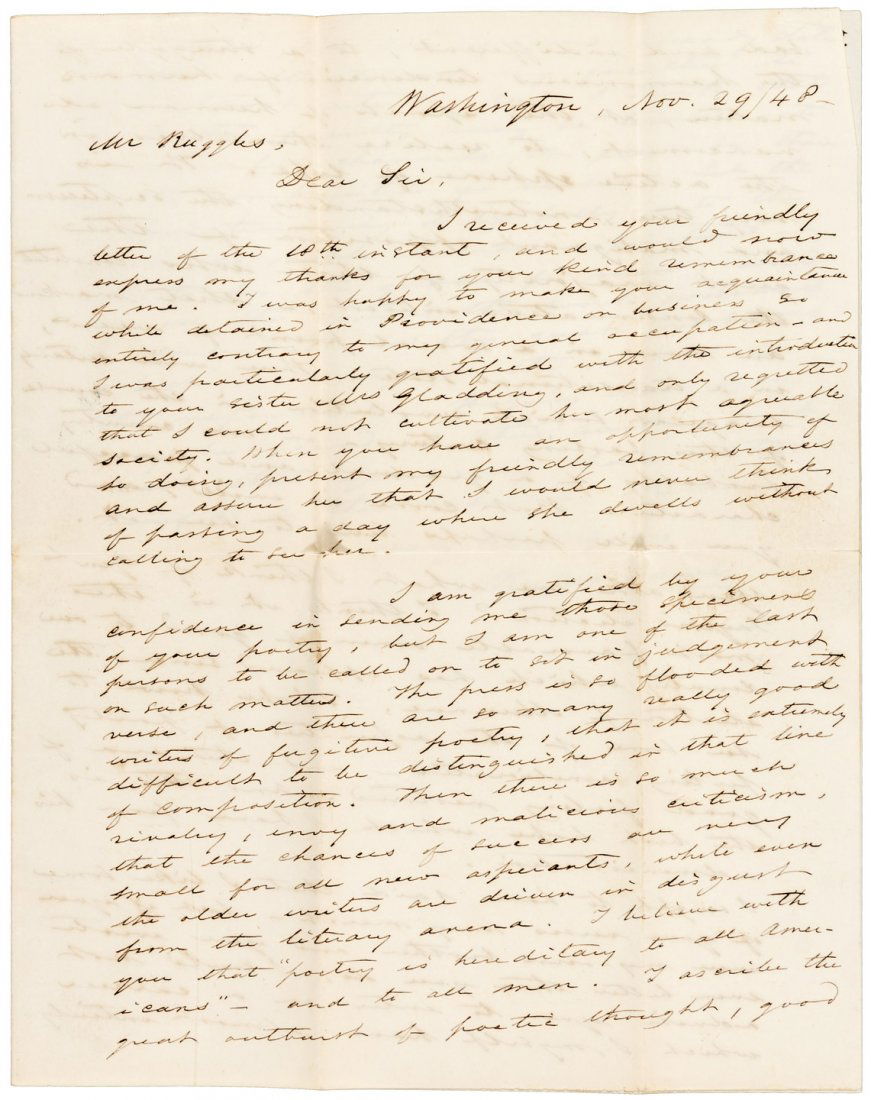 Washington, Nov. 29/48 –
Mr Ruggles,
Dear Sir,
I received your friendly
letter of the 18th instant, and would now
express my thanks for your kind remembrance
of me. I was happy to make your acquaintance
while detained in Providence on business so
entirely contrary to my general occupation – and
I was particularly gratified with the introduction
to your sister Mrs Gladding, and only regretted
that I could not cultivate her most agreeable
society. When you have an opportunity of
so doing, present my friendly remembrances
and assure her that I would never think
of passing a day where she dwells without
calling to see her.
I am gratified by your
confidence in sending me those specimens
of your poetry, but I am one of the last
persons to be called on to sit in judgement
on such matters. The press is so flooded with
verse, and there are so many really good
writers of fugitive poetry, that it is extremely
difficult to be distinguished in that line
of composition. Then there is so much
rivalry, envy and malicious criticism,
that the chances of success are very
small for all new aspirants, while even
the older writers are driven in disgust
from the literary arena. I believe with
you that "poetry is hereditary to all Amer-
icans" – and to all men. I ascribe the
great outburst of poetic thought, good